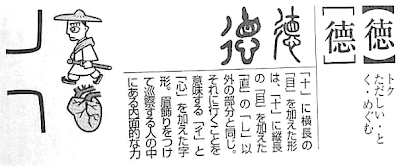 【徳】
［德］
トク
ただしい・と
く・めぐむ
「十」に横長の
「目」を加えた形
は、「十」に縦長
の「目」を加えた
「直」の「L」以
外の部分と同じ。
それに行くことを
意味する「彳」と
「心」を加えた字
形。眉飾りをつけ
て巡察する人の中
にある内面的な力